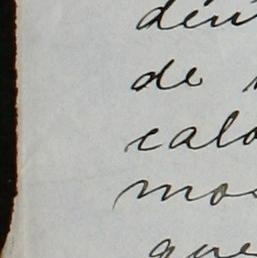 den
de
calo
mos
que